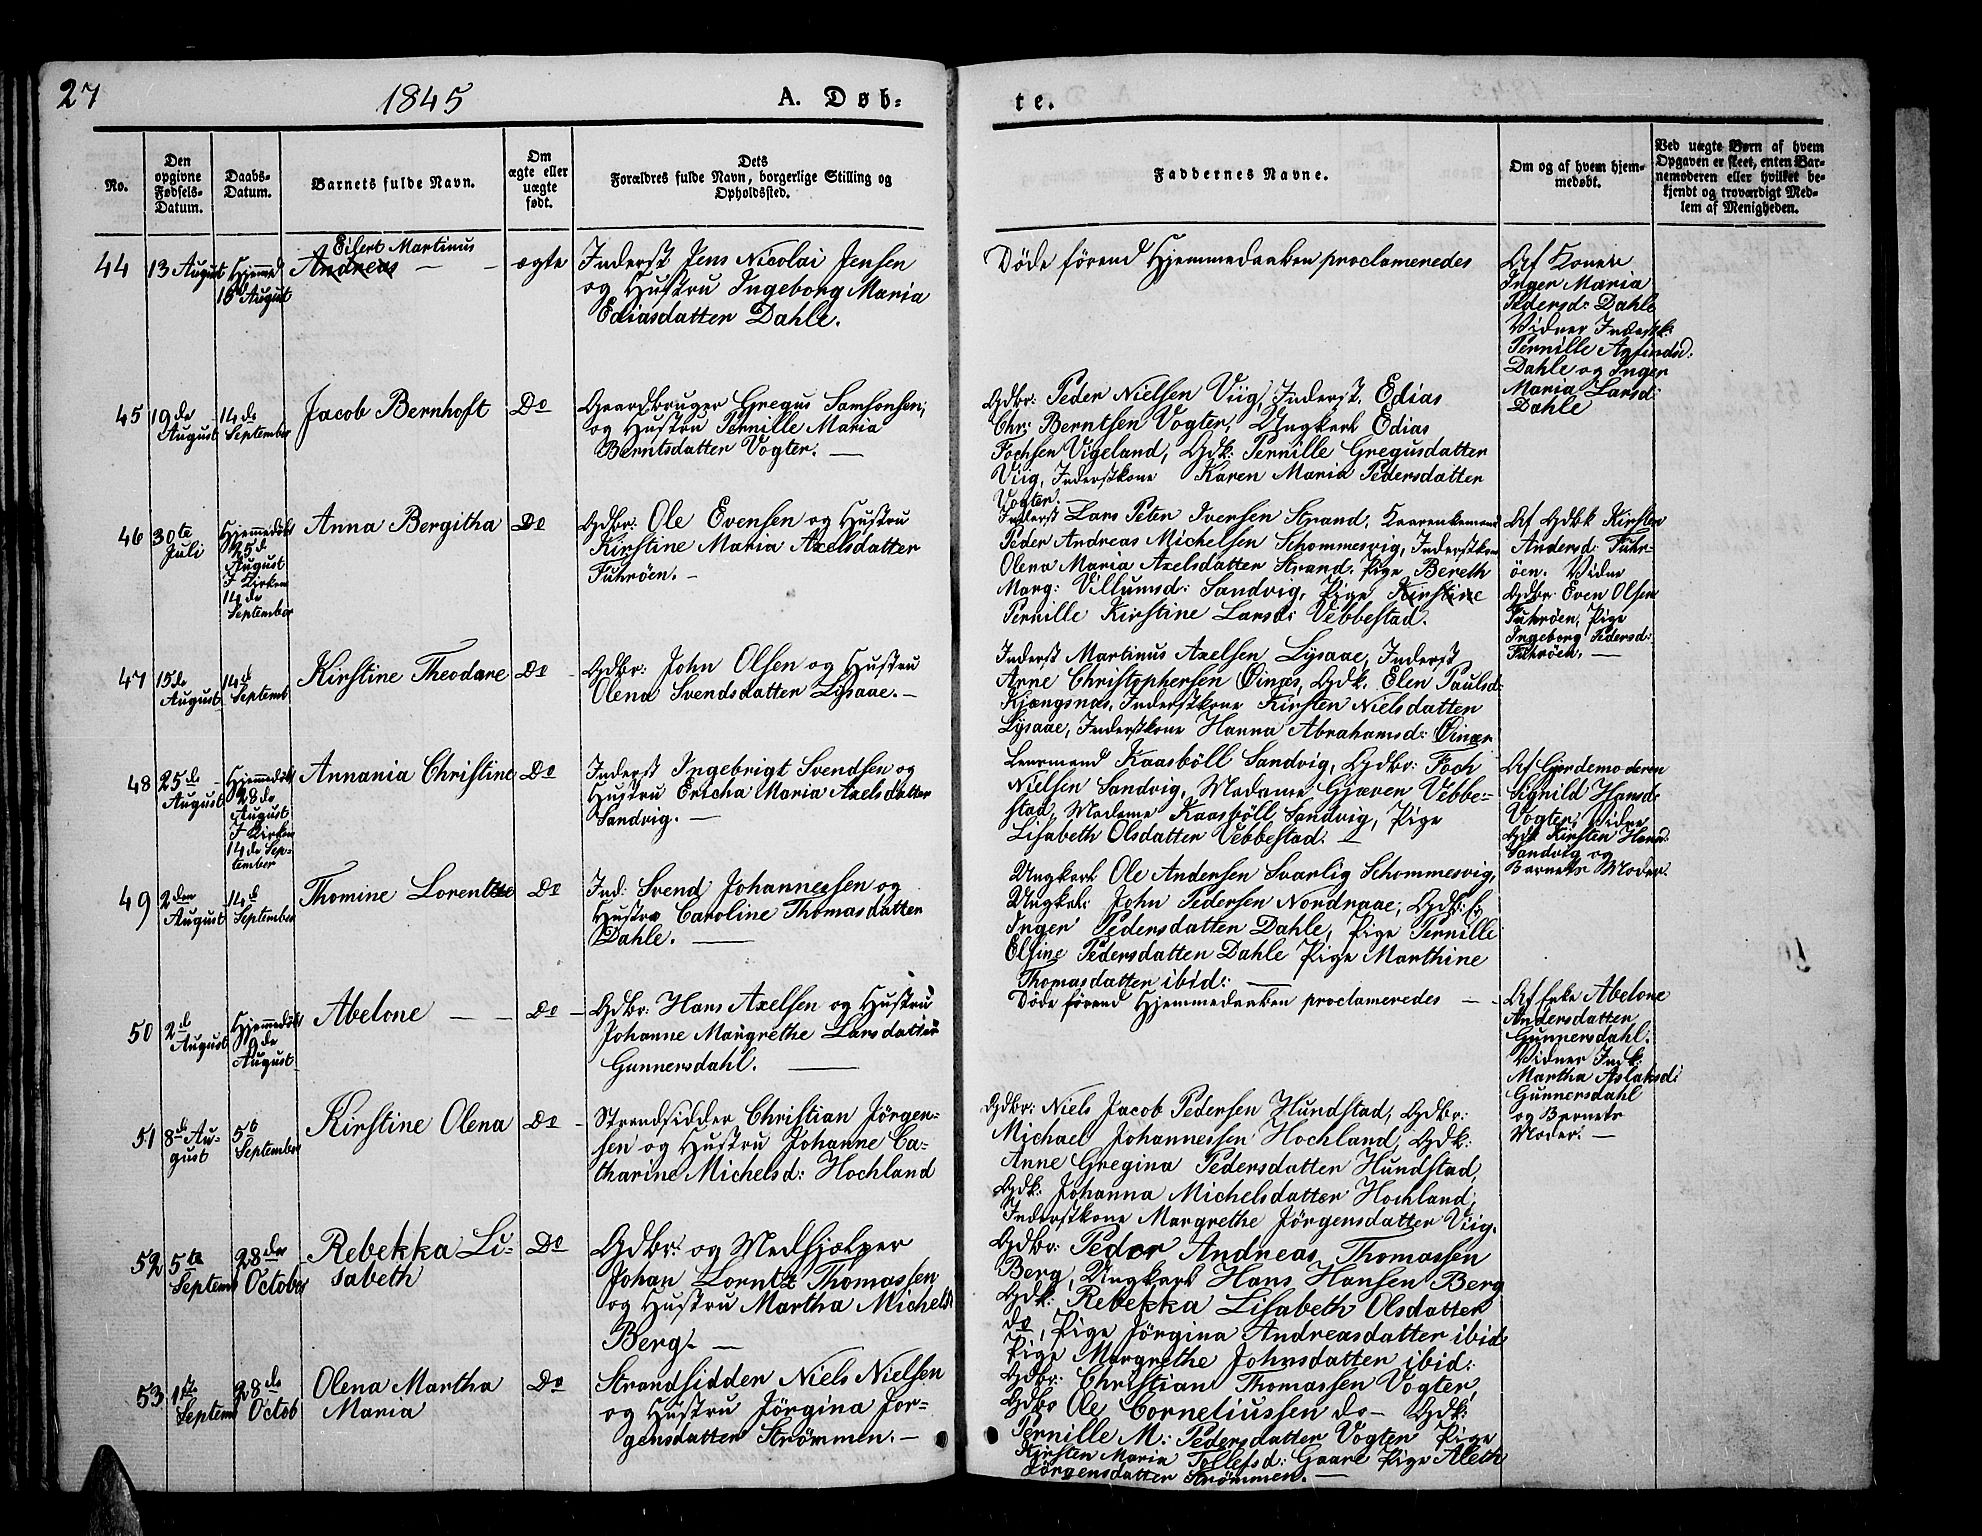 27
1845
A. Døb-
te.
No.
Den
opgivne
Fødsels-
Datum.
Daabs-
Datum.
Barnets fulde Navn.
Om
ægte eller
uægte
født.
Dets
Forældres fulde Navn, borgerlige Stilling og
Opholdssted.
Faddernes Navne.
Om og af hvem hjem-
medøbt.
Ved uægte Børn af hvem
Opgaven er skeet, enten Bar-
nemoderen eller hvilket be-
kjendt og troværdigt Med-
lem af Menigheden.
44
13 August
Hjemmed
16 August
Eilert Martinus
Andreas — -
ægte
Inderst Jens Nicolai Jensen
og Hustru Ingeborg Maria
Ediasdatter Dahle.
Døde førend Hjemmedaaben proclameredes
Af Konen
Inger Maria
Pedersd: Dahle
Vidner Inderstk:
Pernille Dahle og Inger
Maria Larsd:
Dahle
45
19de
August
14de
September
Jacob Bernhoft
Do
Gaardbruger Gregus Samsonsen,
og Hustru Pernille Maria
Berntsdatter Vogter. —
Gdbr: Peder Nielsen Viig, Inderst. Edias
Chr: Berntsen Vogter, Ungkarl Edias
Fochsen Vigeland, Gdk: Pernille Gregusdatter
Viig, Inderstkone Karen Maria Pedersdatter
Vogter. —
46
30te
Juli
Hjemmedøbt
25d
August
I Kirken
14de
September
Anna Bergitha
Do
Gdbr: Ole Evensen og Hustru
Kirstine Maria Axelsdatter
Fuhrøen. -
Inderst Lars Peter Iversen Strand,
Peder Andreas Michelsen Schommesvig, Inderstkon
Olena Maria Axelsdatter Strand. Pige Bereth
Marg: Villumsd: Sandvig, Pige Kirstine
Pernille Kirstine Larsd: Vebbestad.
Af Gdbk Kirsten
Andersd: Fuhr-
öen. Vidne
Gdbr: Even Olsen
Fuhröen, Pige
Ingeborg Pedersd:
Fuhröen. —
47
15de
August
14d
Septemb
Kirstine Theodare
Do
Gdbr: John Olsen og Hustru
Olena Svendsdatter Lysaae. -
Inderst Martinus Axelsen Lysaae, Inderst
Arne Christophersen Öinæs, Gdk. Elen Paulsd:
Kjængsnæs, Inderstkone Kirsten Nielsdatter
Lysaae, Inderstkone Hanna Abrahamsd: Öinæs
48
25de
August
Hjemmedöbt
28de
August
I Kirken
14de Sep-
tember
Annania Christine
Do
Inderst Ingebrigt Svendsen og
Hustru Ericha Maria Axelsdatter
Sandvig. -
Lensmand Kaasböll Sandvig, Gdbr: Foch
Nielsen Sandvig, Madame Gjæver Vebbe-
stad, Madame Kaasböll Sandvig, Pige
Lisabeth Olsdatter Vebbestad. —
Af Gjordemoderen
Signild Hansd:
Vogter, Vidne
Gdk Kirsten Hansd:
Sandvig og
Barnets Moder.
49
2den
August
14d
September
Thomine Lorentze
Do
Ind: Svend Johannessen og
Hustru Caroline Thomasdatter
Dahle. —
Ungkarl Ole Andersen Svarlig Schommesvig,
Ungkal: John Pedersen Nordnaae, Gdk:
Inger Pedersdatter Dahle, Pige Pernille
Elsine Pedersdatter Dahle Pige Marthine
Thomasdatter ibid: —
50
2d
August
Hjemmedöbt
9de
August
Abelone — -
Do
Gdbr: Hans Axelsen og Hustru
Johanne Margrethe Larsdatter
Gunnersdahl. —
Døde førend Hjemmedaaben proclameredes — -
Af Enke Abelone
Andersdatter
Gunnersdahl.
Vidner Indk:
Martha Aslaksd:
Gunnersdahl
og Barnets
Moder. —
51
8d Au-
gust
5t
September
Kirstine Olena
Do
Strandsidder Christian Jörgen-
sen og Hustru Johanne Ca-
tharine Michelsd: Hochland
Gdbr: Niels Jacob Pedersen Hundstad, Gdbr:
Michael Johannessen Hochland, Gdk:
Anne Gregina Pedersdatter Hundstad,
Gdk: Johanna Michelsdatter Hochland,
Inderstkone Margrethe Jörgensdatter Viig.
52
5te
Septemb
28de
October
Rebekka Li-
sabeth
Do
Gdbr: og Medhjælper
Johan Lorntz Thomassen
og Hustru Martha Michels
Berg. —
Gdbr: Peder Andreas Thomassen
Berg, Ungkarl Hans Hansen Berg
Gdk: Rebekka Lisabeth Olsdatter
do, Pige Jörgina Andreasdatter ibid
Pige Margrethe Johnsdatter ibid:
53
1ste
Septemb
28de
Octob
Olena Martha
Maria
Do
Strandsidder Niels Nielsen
og Hustru Jörgina Jör-
gensdatter Strömmen. —
Gdbr: Christian Thomassen Vogter,
Gdbr Ole Corneliussen do - Gdk:
Pernille M: Pedersdatter Vogter Pige
Kirsten Maria Tollefsd: Gaare Pige Aleth
Jörgensdatter Strömmen. —